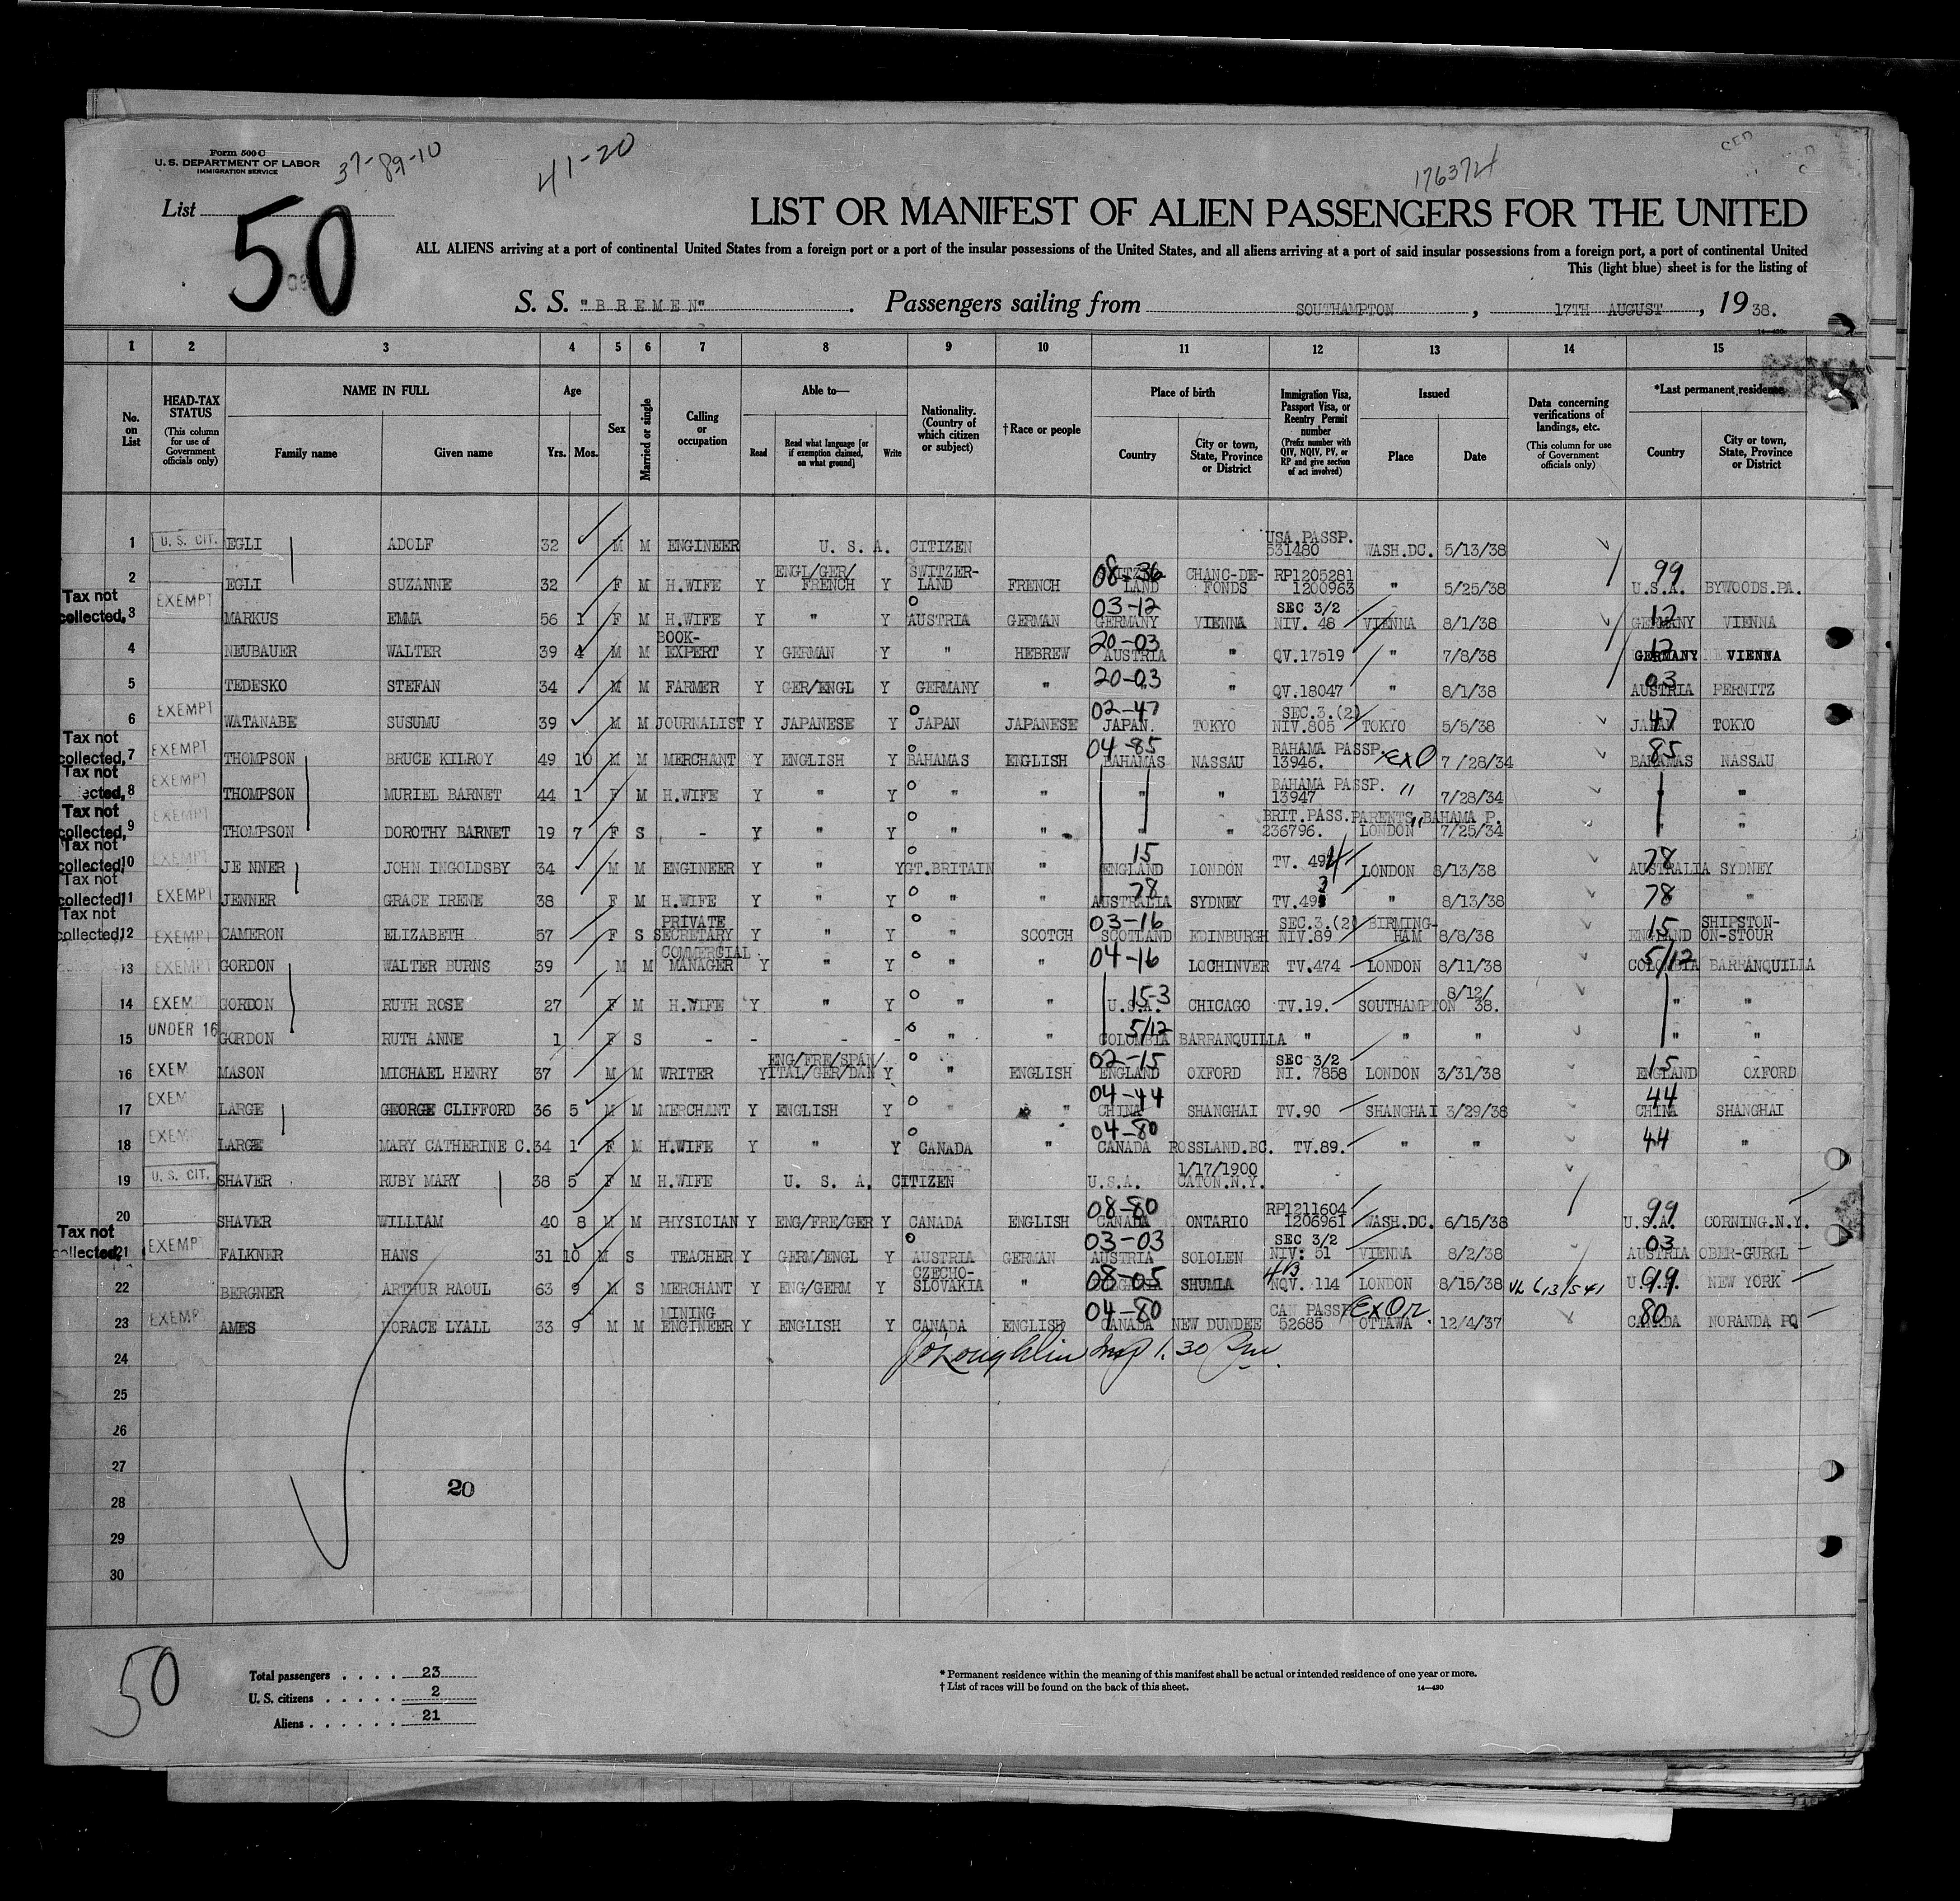 Form 500 C
U. S. DEPARTMENT OF LABOR
IMMIGRATION SERVICE
37-89-10
41-20
176374
List 50
LIST OR MANIFEST OF ALIEN PASSENGERS FOR THE UNITED
ALL ALIENS arriving at a port of continental United States from a foreign port or a port of the insular possessions of the United States, and all aliens arriving at a port of said insular possessions from a foreign port, a port of continental United
This (light blue) sheet is for the listing of
S. S. "BREMEN". Passengers sailing from SOUTHAMPTON, 17TH AUGUST, 1938.
1 2 3 4 5 6 7 8 9 10 11 12 13 14 15
No. on List
HEAD-TAX STATUS (This column for use of Government officials only)
NAME IN FULL Family name Given name
Age Yrs. Mos.
Sex
Married or single
Calling or occupation
Able to— Read Read what language [or if exemption claimed, on what ground] Write
Nationality. (Country of which citizen or subject)
†Race or people
Place of birth Country City or town, State, Province or District
Immigration Visa, Passport Visa, or Reentry Permit number (Prefix number with QIV, NQIV, PV, or RP and give section of act involved)
Issued Place Date
Data concerning verifications of landings, etc. (This column for use of Government officials only)
*Last permanent residence Country City or town, State, Province or District
1 U. S. CIT. EGLI ADOLF 32 M M ENGINEER U. S. A. CITIZEN USA PASSP. 531480 WASH.DC. 5/13/38
2 EGLI SUZANNE 32 F M H.WIFE Y ENGL/GER/ FRENCH Y SWITZER- LAND FRENCH 08-36 LAND CHANC-DE- FONDS RP1205281 1200963 " 5/25/38 99 U.S.A. BYWOODS.PA.
Tax not collected, 3 EXEMPT MARKUS EMMA 56 1 F M H.WIFE Y " Y AUSTRIA GERMAN 03-12 GERMANY VIENNA SEC 3/2 NIV. 48 VIENNA 8/1/38 12 GERMANY VIENNA
4 NEUBAUER WALTER 39 4 M M BOOK- EXPERT Y GERMAN Y " HEBREW 20-03 AUSTRIA " QV.17519 " 7/8/38 12 GERMANY VIENNA
5 TEDESKO STEFAN 34 M M FARMER Y GER/ENGL Y GERMANY " 20-03 " QV.18047 " 8/1/38 03 AUSTRIA PERNITZ
6 EXEMPT WATANABE SUSUMU 39 M M JOURNALIST Y JAPANESE Y JAPAN JAPANESE 02-47 JAPAN. TOKYO SEC.3.(2) NIV.805 TOKYO 5/5/38 47 JAPAN TOKYO
Tax not collected, 7 EXEMPT THOMPSON BRUCE KILROY 49 10 M M MERCHANT Y ENGLISH Y BAHAMAS ENGLISH 04-85 BAHAMAS NASSAU BAHAMA PASSP. 13946. EXO 7/28/34 85 BAHAMAS NASSAU
Tax not collected, 8 EXEMPT THOMPSON MURIEL BARNET 44 1 F M H.WIFE Y " Y " " " BAHAMA PASSP. 13947 " 7/28/34 "
Tax not collected, 9 EXEMPT THOMPSON DOROTHY BARNET 19 7 F S - Y " Y " " " " BRIT.PASS.PARENTS BAHAMA P. 236796. LONDON 7/25/34 " "
Tax not collected, 10 EXEMPT JENNER JOHN INGOLDSBY 34 M M ENGINEER Y " Y GT.BRITAIN " 15 ENGLAND LONDON TV. 494 LONDON 8/13/38 78 AUSTRALIA SYDNEY
Tax not collected, 11 EXEMPT JENNER GRACE IRENE 38 F M H.WIFE Y " Y " " 78 AUSTRALIA SYDNEY TV.493 " 8/13/38 78 "
Tax not collected, 12 EXEMPT CAMERON ELIZABETH 57 F S PRIVATE SECRETARY Y " Y " SCOTCH 03-16 SCOTLAND EDINBURGH SEC.3.(2) NIV.89 BIRMING- HAM 8/8/38 15 ENGLAND SHIPSTON- ON-STOUR
13 EXEMPT GORDON WALTER BURNS 39 M M COMMERCIAL MANAGER Y " Y " " 04-16 LOCHINVER TV.474 LONDON 8/11/38 5/12 COLOMBIA BARRANQUILIA
14 EXEM GORDON RUTH ROSE 27 F M H.WIFE Y " Y " " 15-3 U.S.A. CHICAGO TV.19. SOUTHAMPTON 8/12/ 38. " "
15 UNDER 16 GORDON RUTH ANNE 1 F S - - - - " " 5/12 COLOMBIA BARRANQUILLA " " " " "
16 EXEM MASON MICHAEL HENRY 37 M M WRITER Y ENG/FRE/SPAN/ ITAL/GER/DAN Y " ENGLISH 02-15 ENGLAND OXFORD SEC 3/2 NI. 7858 LONDON 3/31/38 15 ENGLAND OXFORD
17 EXEM LARGE GEORGE CLIFFORD 36 5 M M MERCHANT Y ENGLISH Y " " 04-44 CHINA SHANGHAI TV.90 SHANGHAI 3/29/38 44 CHINA SHANGHAI
18 EXEM LARGE MARY CATHERINE C. 34 1 F M H.WIFE Y " Y CANADA " 04-80 CANADA ROSSLAND.BC. TV.89. " " 44 "
19 U. S. CIT. SHAVER RUBY MARY 38 5 F M H.WIFE U. S. A. CITIZEN U.S.A. 1/17/1900 CATON.N.Y.
20 SHAVER WILLIAM 40 8 M M PHYSICIAN Y ENG/FRE/GER Y CANADA ENGLISH 08-80 CANADA ONTARIO RP1211604 1206961 WASH.DC. 6/15/38 99 U.S.A. CORNING.N.Y.
Tax not collected 21 EXEMPT FALKNER HANS 31 10 M S TEACHER Y GERM/ENGL Y AUSTRIA GERMAN 03-03 AUSTRIA SOLOLEN SEC 3/2 NIV: 51 VIENNA 8/2/38 03 AUSTRIA OBER-GURGL
22 BERGNER ARTHUR RAOUL 63 9 M S MERCHANT Y ENG/GERM Y CZECHO- SLOVAKIA " 08-05 SHUMLA NQV. 114 LONDON 8/15/38 VL 613/541 99 NEW YORK
23 EXEMPT AMES HORACE LYALL 33 9 M M MINING ENGINEER Y ENGLISH Y CANADA ENGLISH 04-80 CANADA NEW DUNDEE CAN PASSP 52685 OTTAWA 12/4/37 80 CANADA NORANDA PQ
24 J O'Loughlin Insp 1.30 Pm.
25
26
27
20
28
29
30
50
Total passengers . . . . 23
U. S. citizens . . . . . 2
Aliens . . . . . . 21
* Permanent residence within the meaning of this manifest shall be actual or intended residence of one year or more.
† List of races will be found on the back of this sheet. 14—430